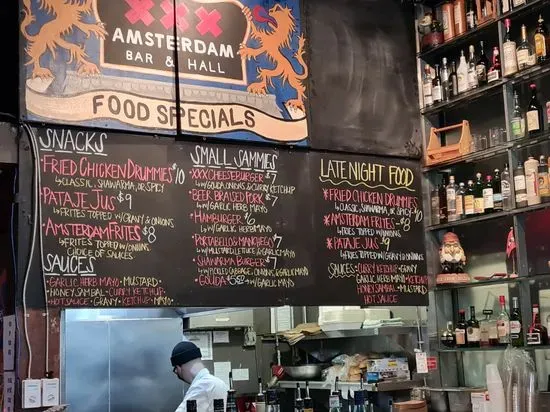 XXX
AMSTERDAM
BAR & HALL
FOOD SPECIALS
SNACKS
FRIED CHICKEN DRUMMIES $10
↳ CLASSIC, SHAWARMA, OR SPICY
PATAJE JUS $9
↳ FRITES TOPPED W/ GRAVY & ONIONS
AMSTERDAM FRITES $8
↳ FRITES TOPPED W/ ONIONS,
CHOICE OF SAUCES
SAUCES
GARLIC HERB MAYO • MUSTARD •
HONEY SAMBAL • CURRY KETCHUP •
HOT SAUCE • GRAVY • KETCHUP • MAYO
SMALL SAMMIES
XXX CHEESEBURGER $7
↳ W/ GOUDA, ONIONS & CURRY KETCHUP
BEEF BRAISED PORK $7
↳ W/ GARLIC HERB MAYO
HAMBURGER $6
↳ W/ GARLIC HERB MAYO
PORTABELLO & MANCHEGO $7
↳ W/ MUSTARD, LETTUCE & GARLIC MAYO
SHAWARMA BURGER $7
↳ W/ PICKLED CABBAGE, ONIONS, GARLIC MAYO
GOUDA ↳ W/ GARLIC MAYO
LATE NIGHT FOOD
* FRIED CHICKEN DRUMMIES $10
CLASSIC, SHAWARMA, OR SPICY
* AMSTERDAM FRITES - $8
↳ FRIES TOPPED W/ ONIONS
* PATAJE JUS - $9
↳ FRITES TOPPED W/ GRAVY & ONIONS
SAUCES: CURRY KETCHUP • GRAVY
GARLIC HERB MAYO • KETCHUP
HONEY SAMBAL • MUSTARD
HOT SAUCE